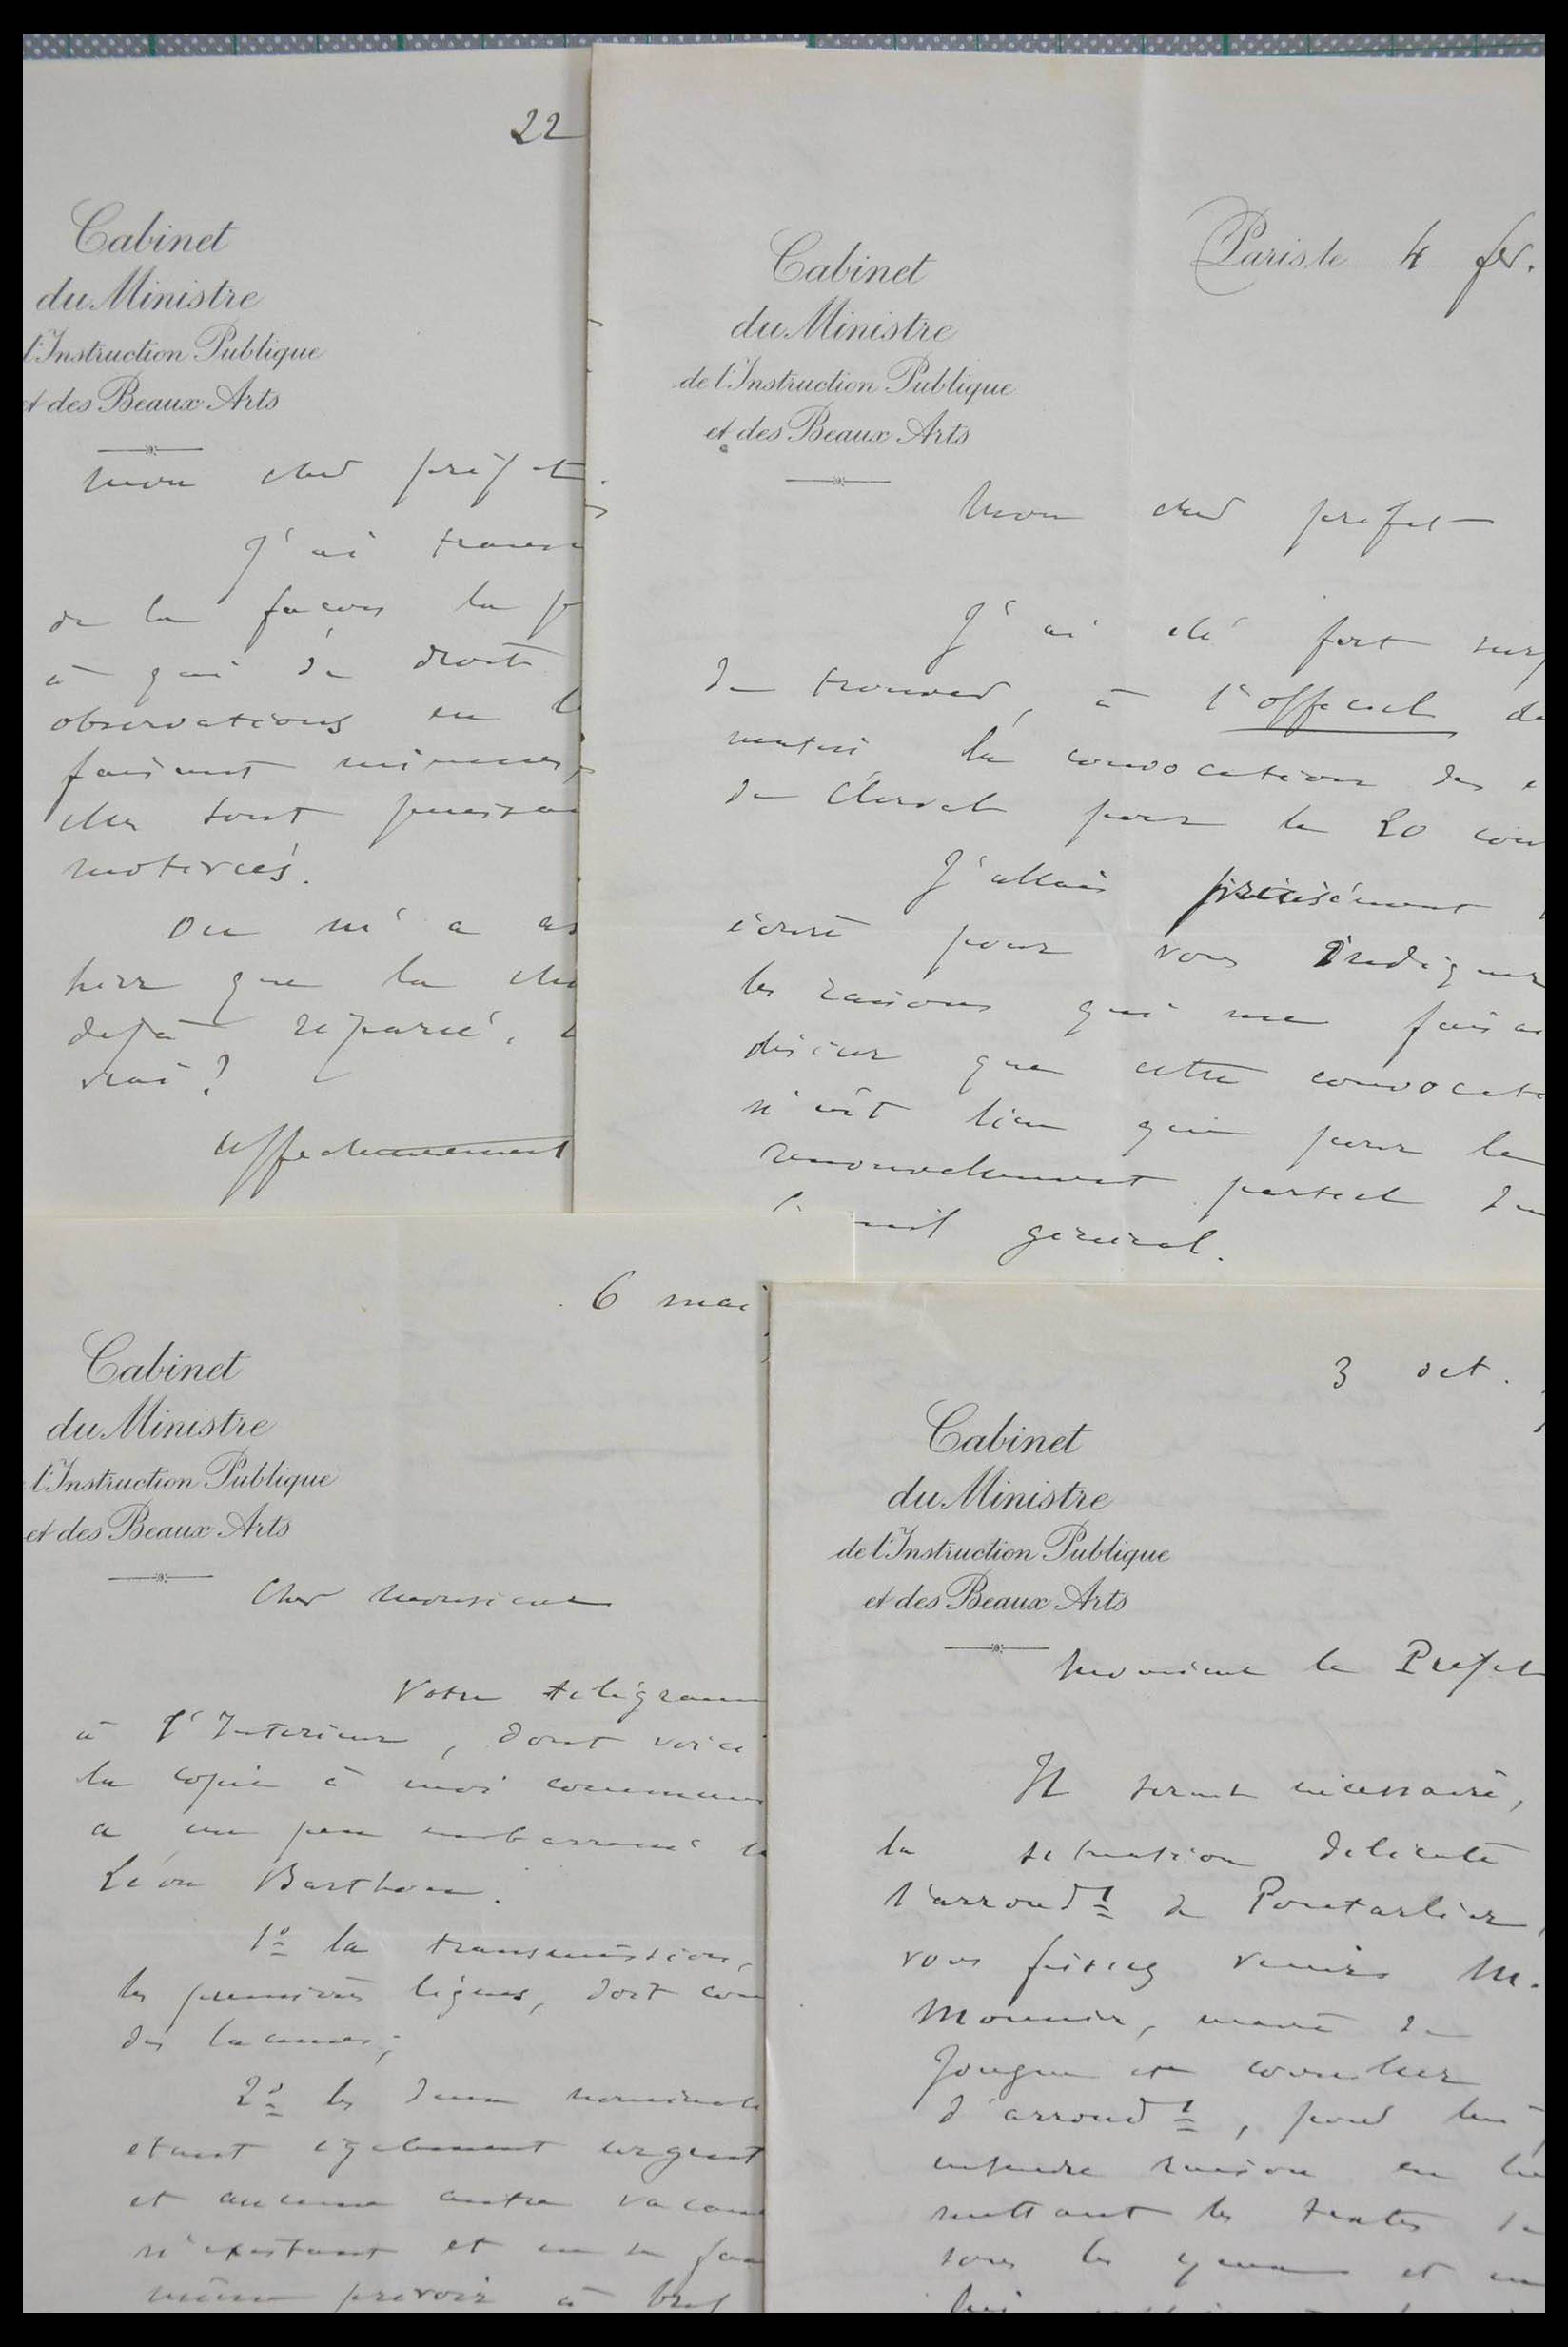 22
Cabinet
du Ministre
l'Instruction Publique
et des Beaux Arts
Mon cher préfet
J'ai
de la façon la
à qui de droit
observations en
faisant
elles sont
motivées.
On m'a
hier que la
déjà réparé,
vrai ?
affectueusement
Cabinet
du Ministre
de l'Instruction Publique
et des Beaux Arts
Paris, le 4 fev.
Mon cher préfet
J'ai été fort
de trouver, à l'officiel
la convocation des
de Clerval pour le 20
J'allais précisément
écrire pour vous indiquer
les raisons qui me
désirer que cette
n'eût lieu que pour le
renouvellement partiel du
général.
6 mai
Cabinet
du Ministre
l'Instruction Publique
et des Beaux Arts
Cher Monsieur
Votre
à l'Intérieur, dont voici
la copie à moi
a un peu embarrassé
Léon Barthou.
1º la transmission,
les premières lignes, doit
des lacunes;
2º les deux
étant également
et aucune autre
n'existant et ne se
même prévoir à bref
3 oct.
Cabinet
du Ministre
de l'Instruction Publique
et des Beaux Arts
Monsieur le Préfet
Il serait nécessaire,
la situation délicate
l'arrondt de Pontarlier,
vous fissiez venir M.
Mounier, maire de
Jougne et conseiller
d'arrondt, pour lui
entendre raison en
mettant les textes
sous les yeux et